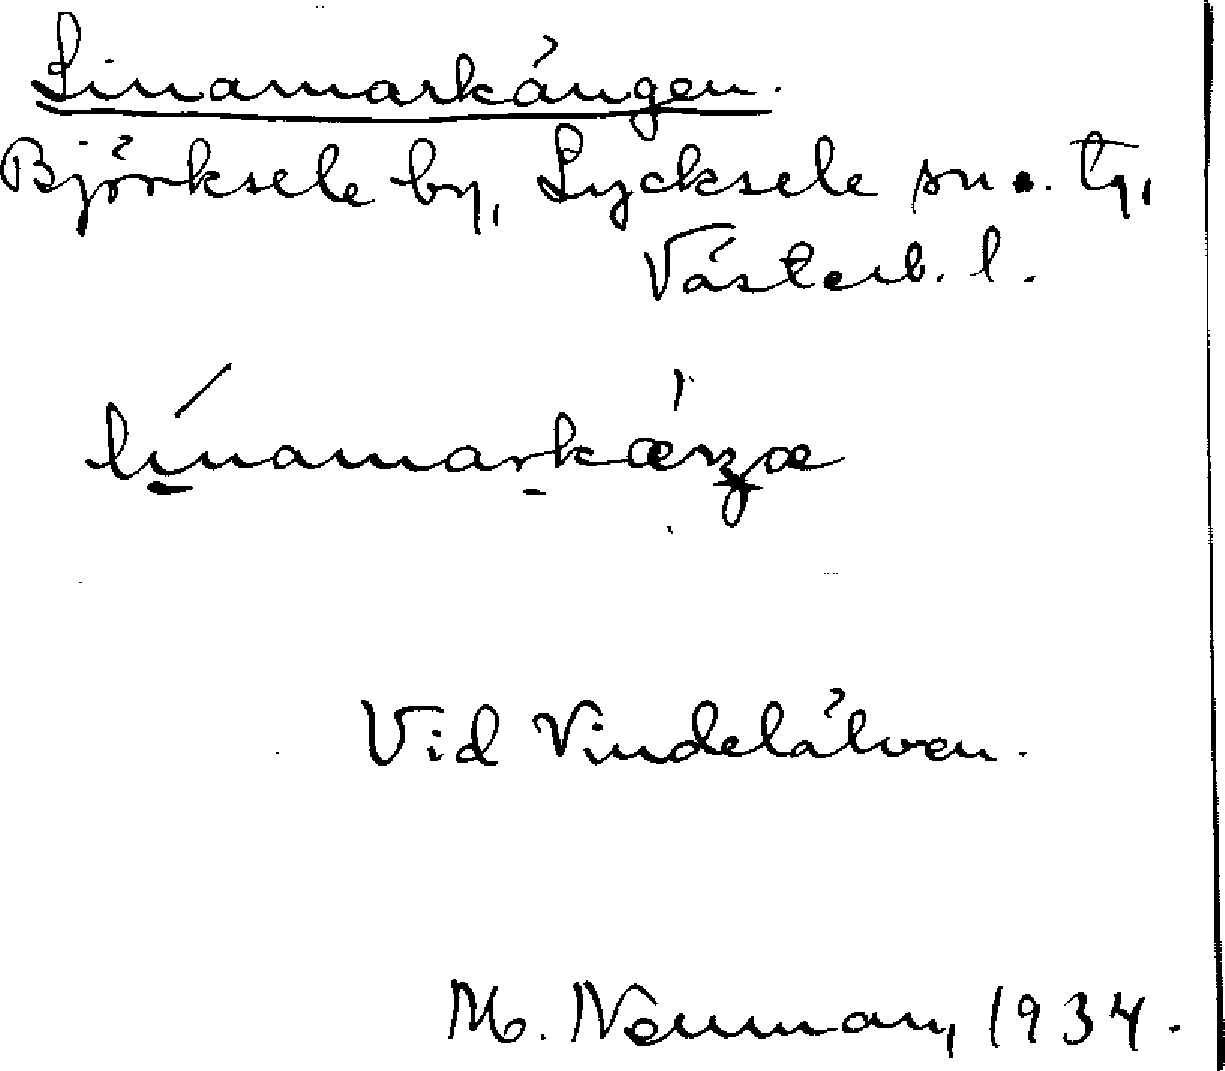 Linamarkängen.
Björksele by, Lycksele sn o. tg,
Västerb. l.
Vid Vindelälven.
M. Neuman, 1934.